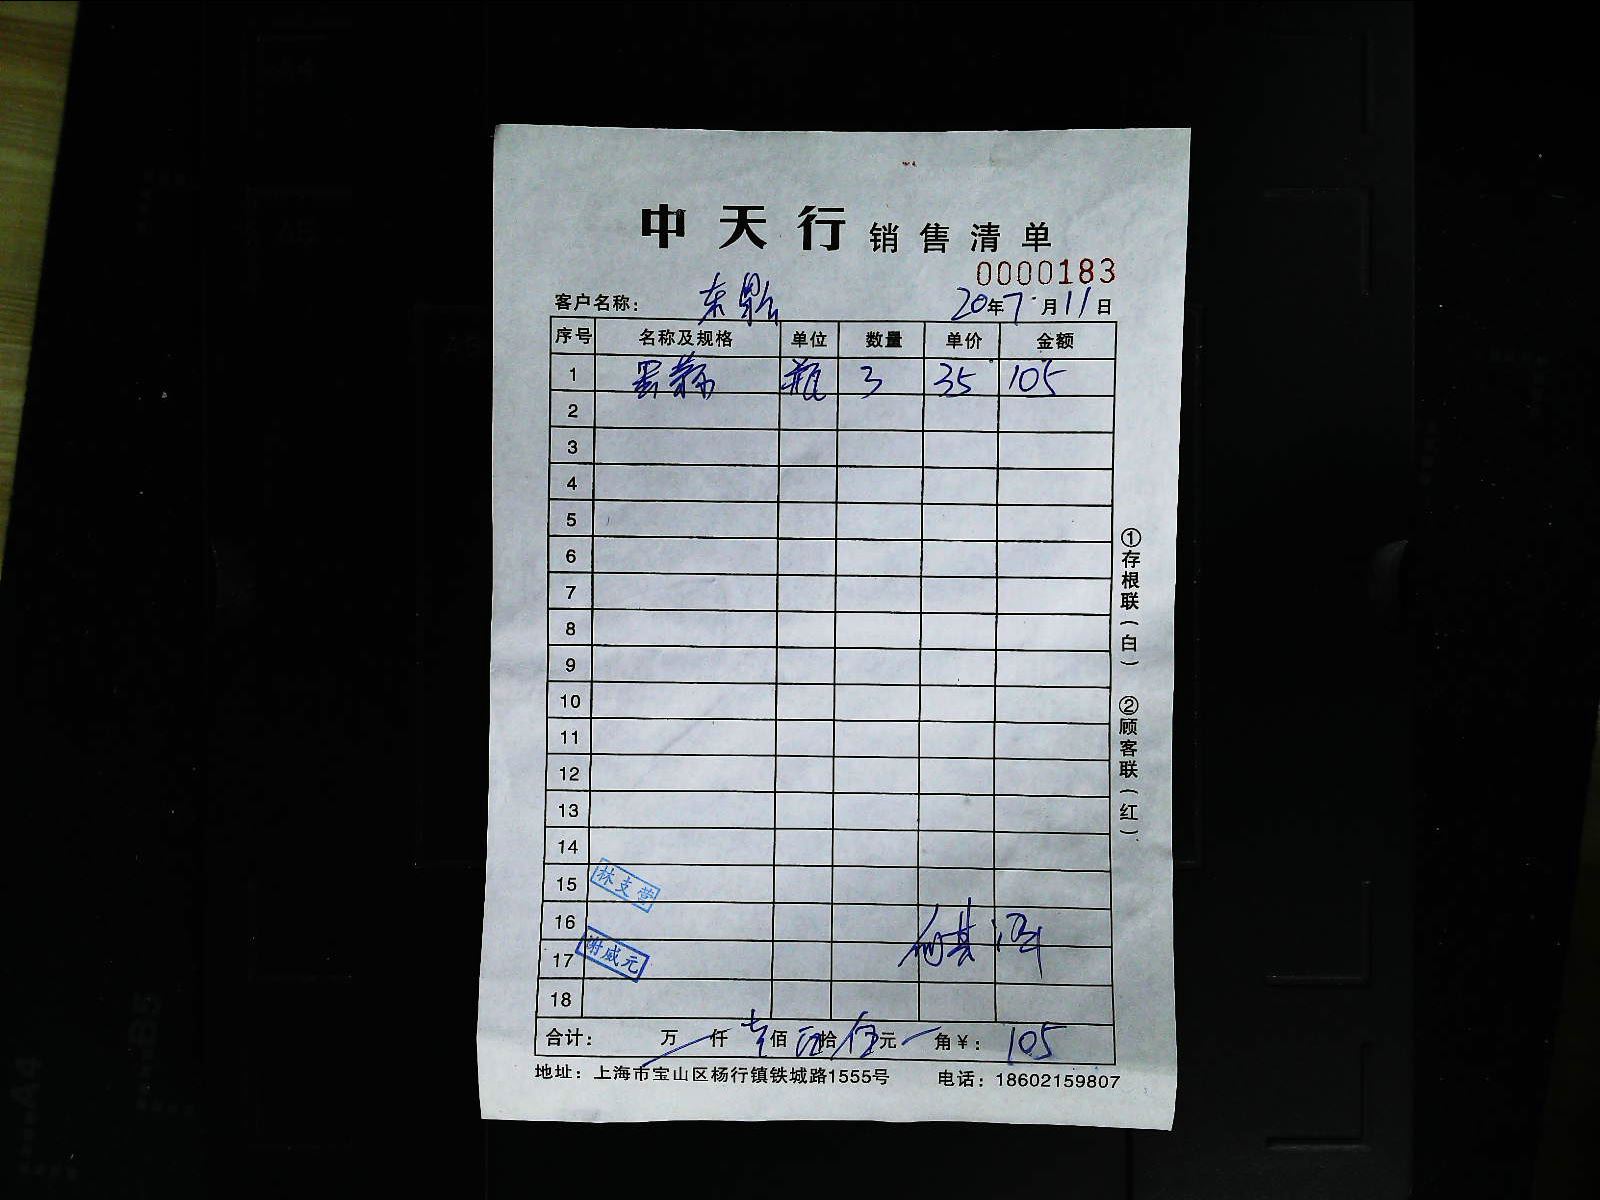 中天行 销售清单
0000183
客户名称： 东 20年7月11日
序号 名称及规格 单位 数量 单价 金额
1 瓶 3 35 105
2
3
4
5
6
7
8
9
10
11
12
13
14
15 林支营
16
17 谢威元
18
合计： 万 仟 壹佰 拾 伍元 角￥： 105
地址：上海市宝山区杨行镇铁城路1555号 电话：18602159807
①存根联（白） ②顾客联（红）